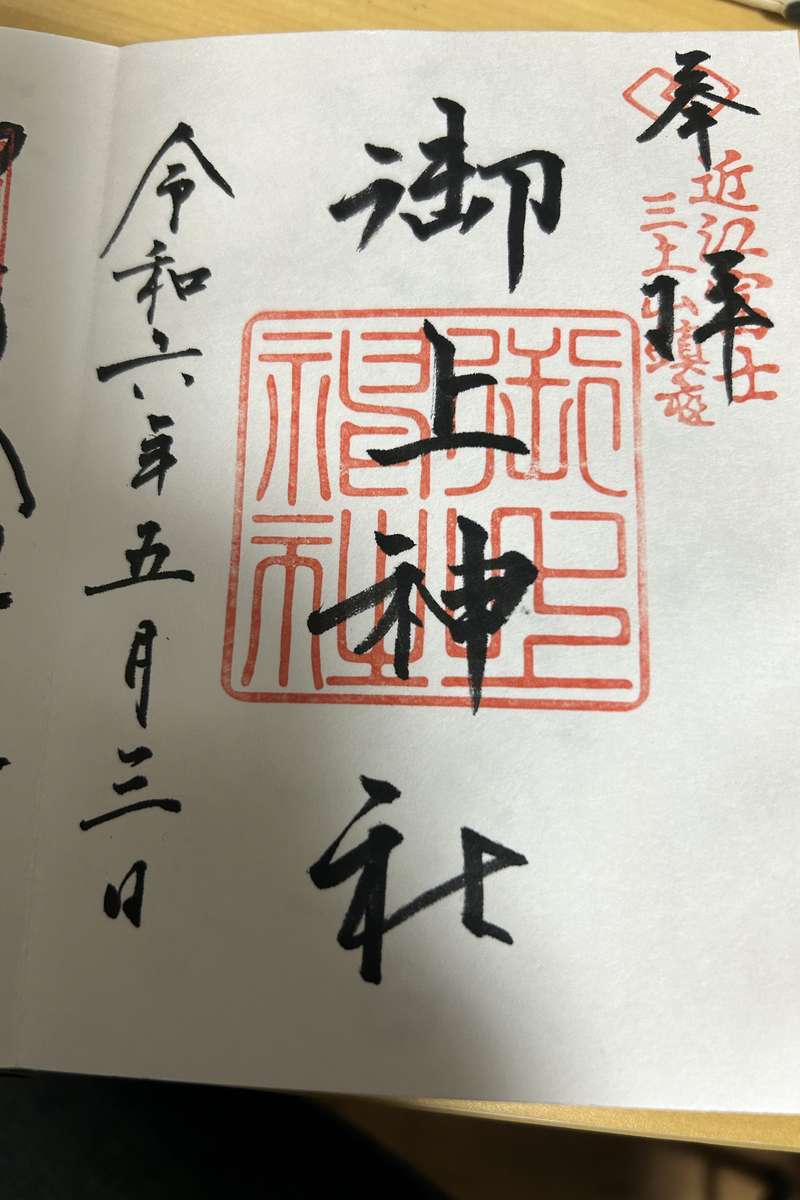 奉拝
近江富士
三上山鎮座
御上神社
御上神社
令和六年五月三日